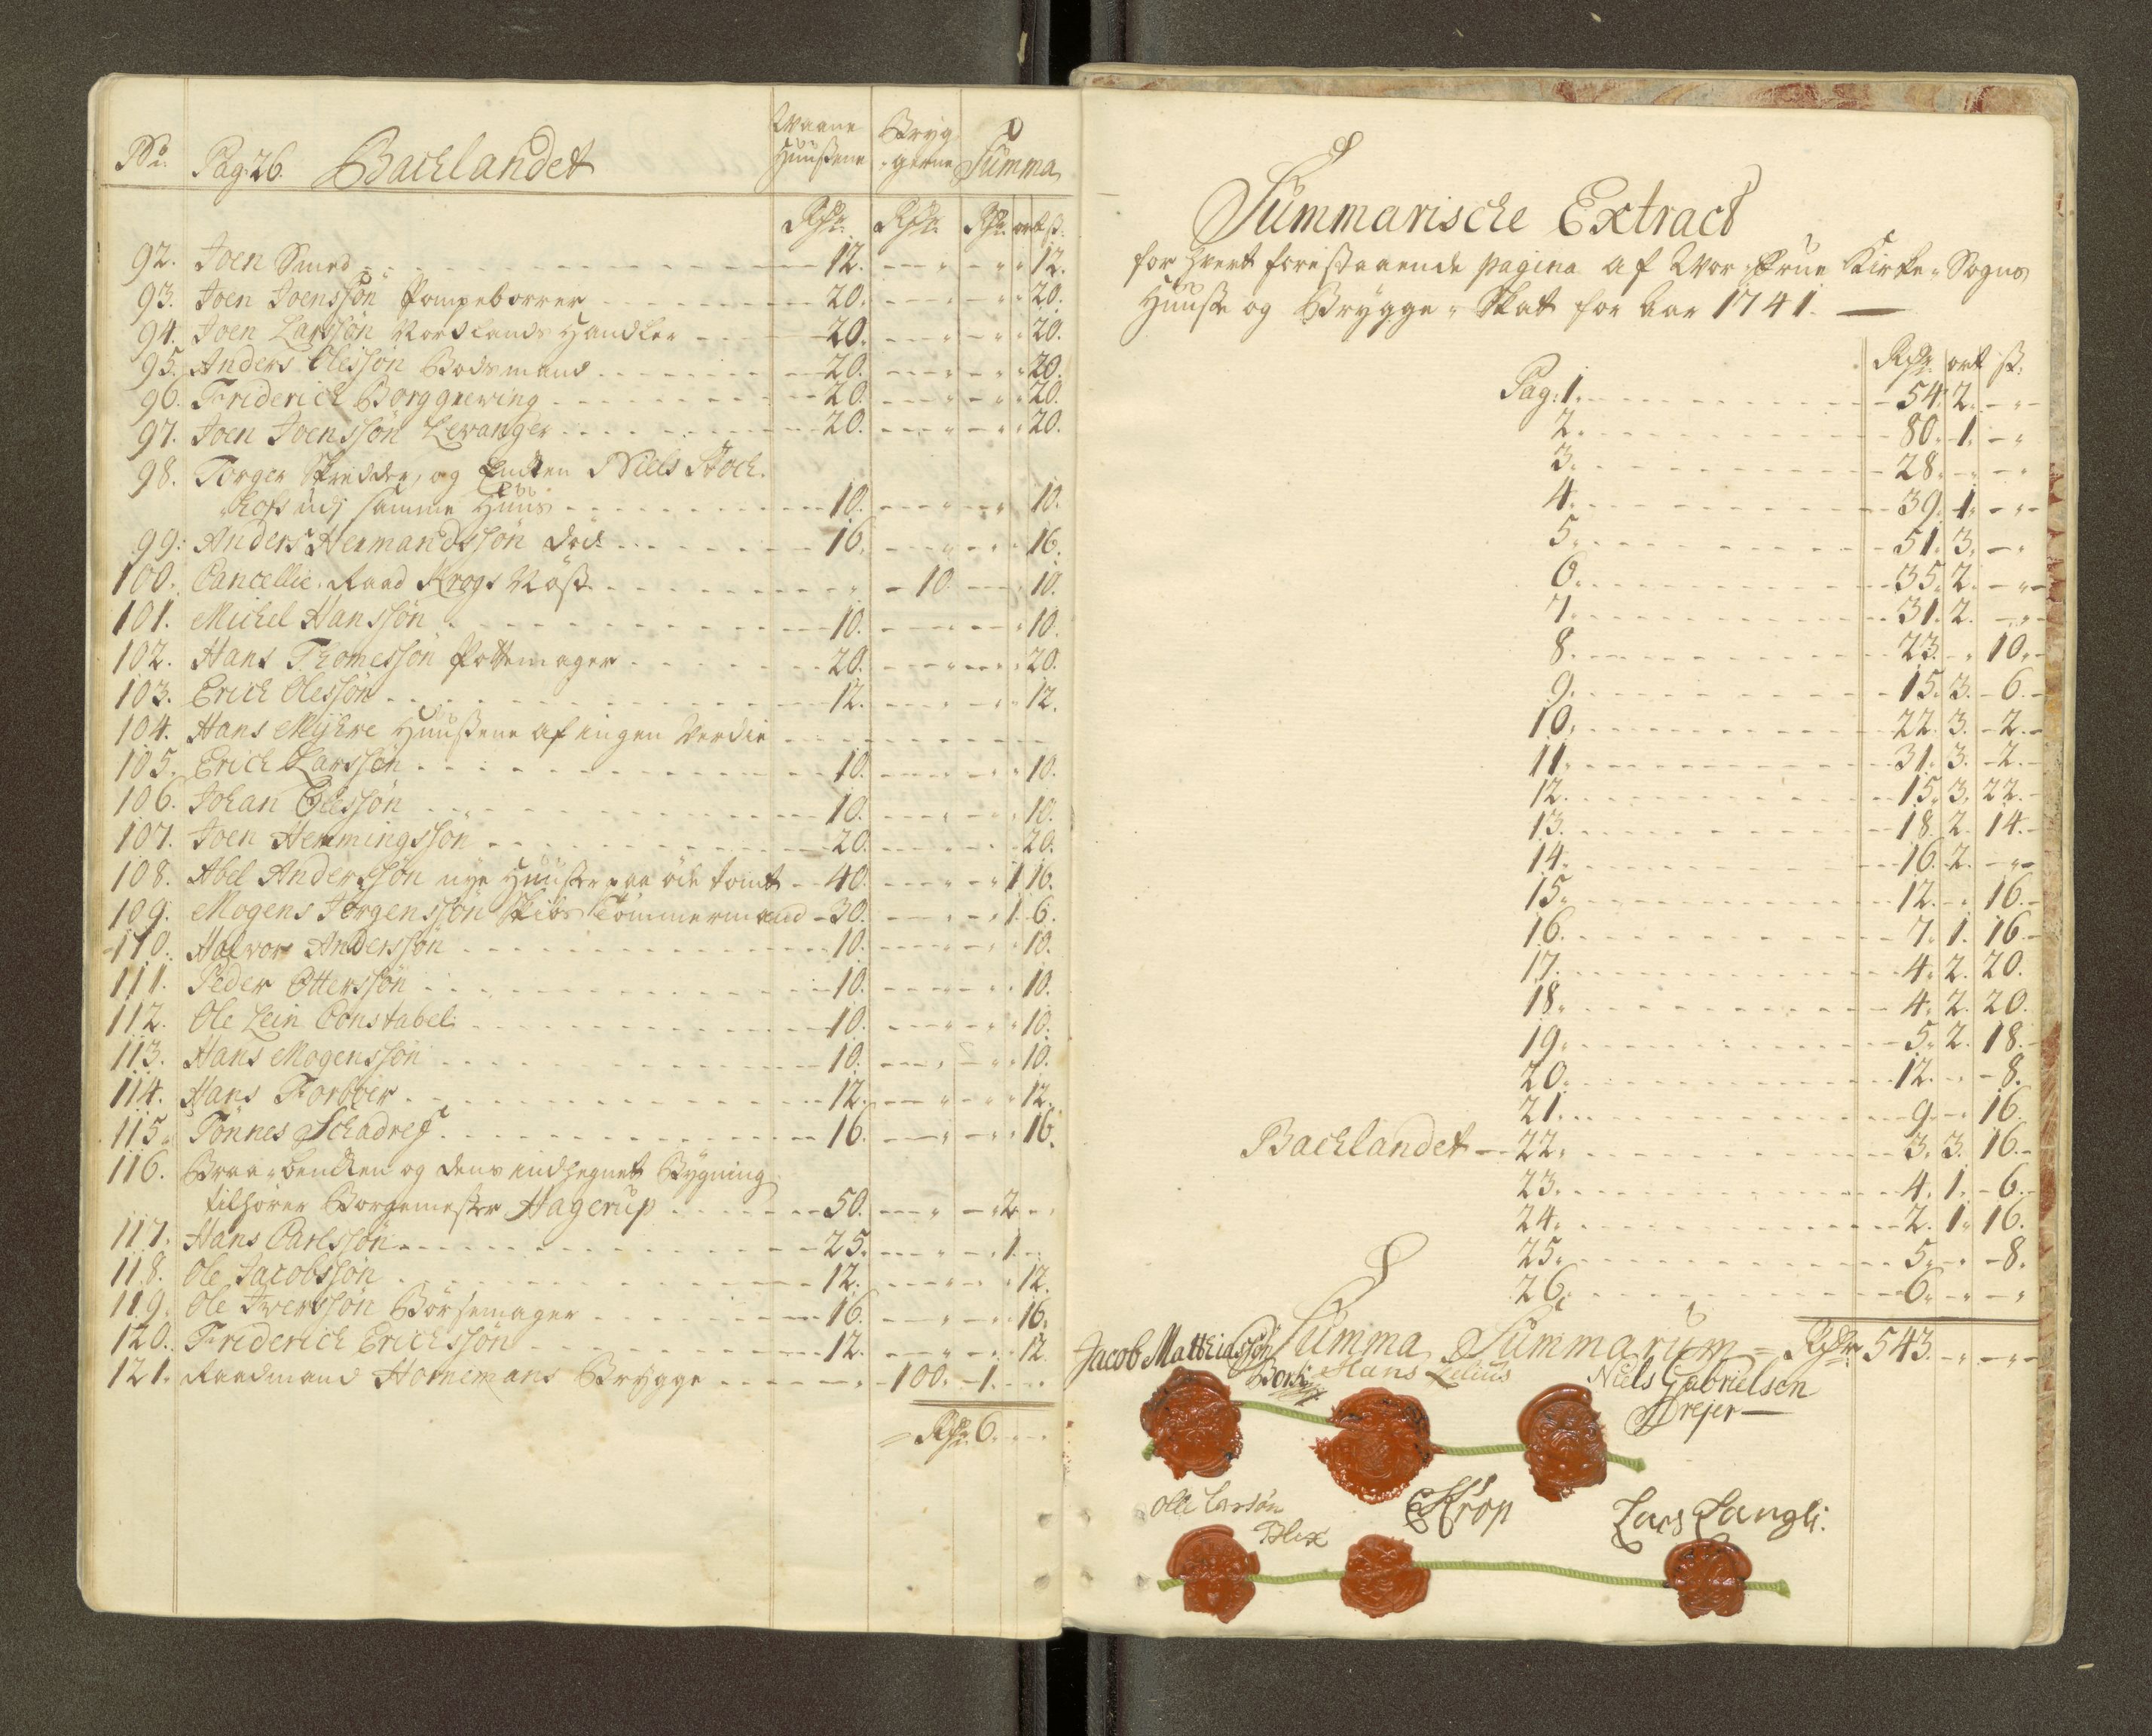 No. Pag: 26. Bachlandet Waane Huußene Bryg-gerne Summa
Rdr. Rdr. Rdr. ort ß.
92. Joen Smed 12. 12.
93. Joen Joenssøn Pompeborrer 20. 20.
94. Joen Larssøn Nordlands Handler 20. 20.
95. Anders Olessøn Bodsmand 20. 20.
96. Friderich Borggrewing 20. 20.
97. Joen Joenssøn Levanger 20. 20.
98. Torger Skredder, og Encken Niels Stoch.
udj samme Huus 10. 10.
99. Anders Hermandssøn død 16. 16.
100. Cancellie Raad Krogs Nøst 10. 10.
101. Michel Hanssøn 10. 10.
102. Hans Thomessøn Pottemager 20. 20.
103. Erich Olessøn 12. 12.
104. Hans Myhre Huußene af ingen Verdie
105. Erich Larssøn 10. 10.
106. Johan Olessøn 10. 10.
107. Joen Hemmingssøn 20. 20.
108. Abel Anderssøn nye Huuße paa øde tomt 40. 1 16.
109. Mogens Jørgenssøn Skibs Tømmermand 30. 1. 6.
110. Halvor Anderssøn 10. 10.
111. Peder Otterssøn 10. 10.
112. Ole Lein Constabel 10. 10.
113. Hans Mogenssøn 10. 10.
114. Hans Forbver 12. 12.
115. Tønnes Schadref 16. 16.
116. Braa-bencken og dens indhegnet Bygning
tilhører Borgemester Hagerup 50. 2
117. Hans Carlssøn 25. 1.
118. Ole Jacobssøn 12. 12.
119. Ole Iverssøn Børsemager 16. 16.
120. Friderich Erichssøn 12. 12
121. Raadmand Hornemans Brygge 100. 1.
Rdr. 6.
Summarische Extract
for hvert forestaaende pagina af Vor Frue Kirke-Sogns
Huuse og Brygge-Skat for Aar 1741.
Rdr. ort ß.
Pag: 1. 54. 2.
2. 80. 1.
3. 28.
4. 39. 1.
5. 51. 3.
6. 35. 2.
7. 31. 2.
8. 23. 10.
9. 15. 3. 6.
10. 22. 3. 2.
11. 31. 3. 2.
12. 15. 3. 22.
13. 18. 2. 14.
14. 16. 2.
15. 12. 16.
16. 7. 1. 16
17. 4. 2. 20.
18. 4. 2. 20.
19. 5. 2. 18.
20. 12. 8.
21. 9. 16.
Bachlandet 22. 3. 3. 16.
23. 4. 1. 6.
24. 2. 1. 16.
25. 5. 8.
26. 6.
Summa Summarum Rdr. 543.
Jacob Matthiassøn Borch Hans Lilius Niels Gabrielsen
Drejer
Olle Larsøn Blix EKrop Lars Langli.